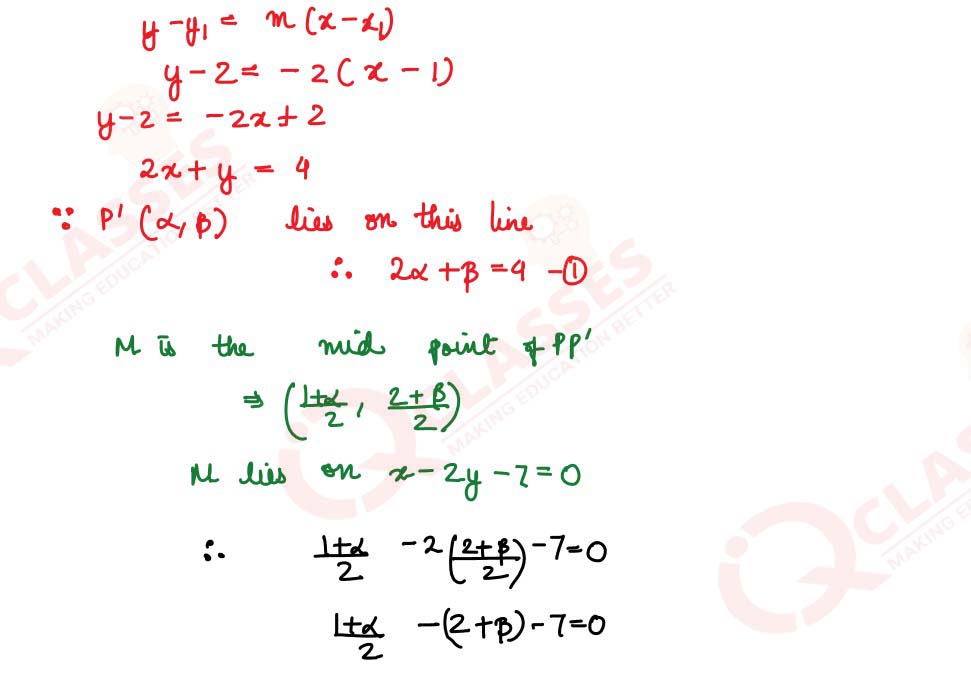 y - y₁ = m (x - x₁)
y - 2 = - 2 ( x - 1)
y - 2 = - 2x + 2
2x + y = 4
∵ P' (α, β) lies on this line
∴ 2α + β = 4 - ①
M is the mid point of PP'
⇒ ( (1+α)/2 , (2+β)/2 )
M lies on x - 2y - 7 = 0
∴ (1+α)/2 - 2 ( (2+β)/2 ) - 7 = 0
(1+α)/2 - (2+β) - 7 = 0
CLASSES
MAKING EDUCATION BETTER
iQ CLASSES
MAKING EDUCATION BETTER
iQ CLASSES
MAKING ED